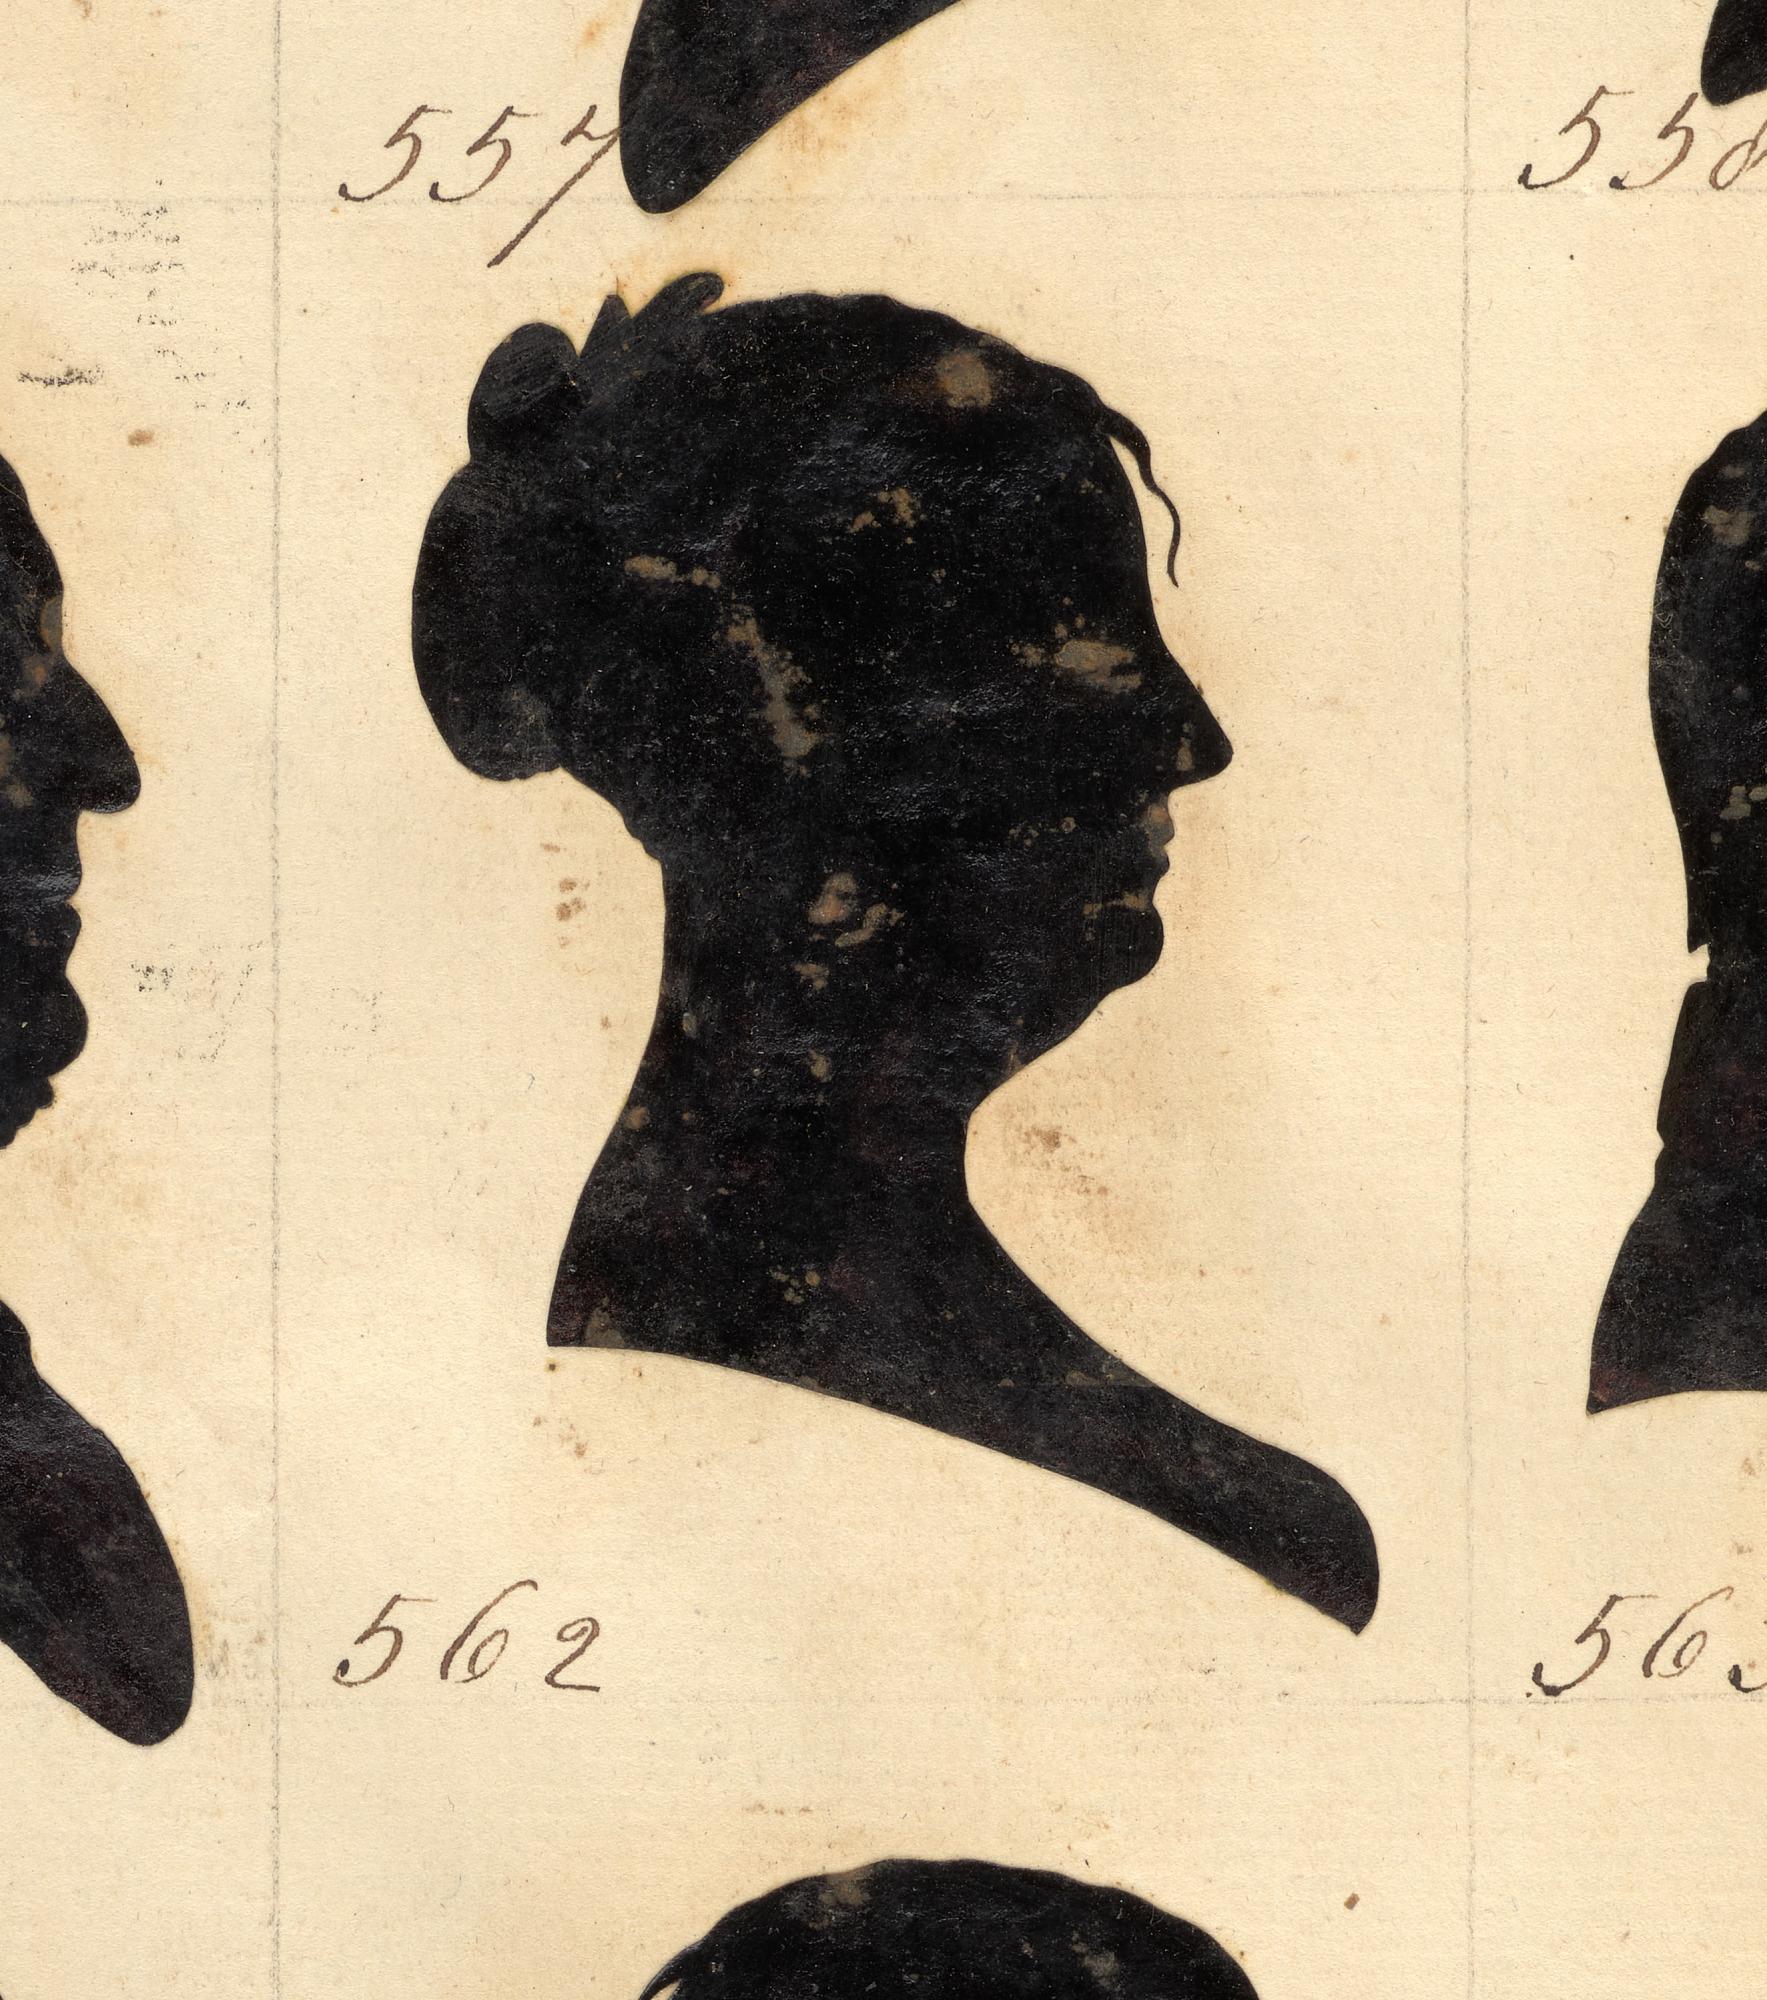 557 558
562 563